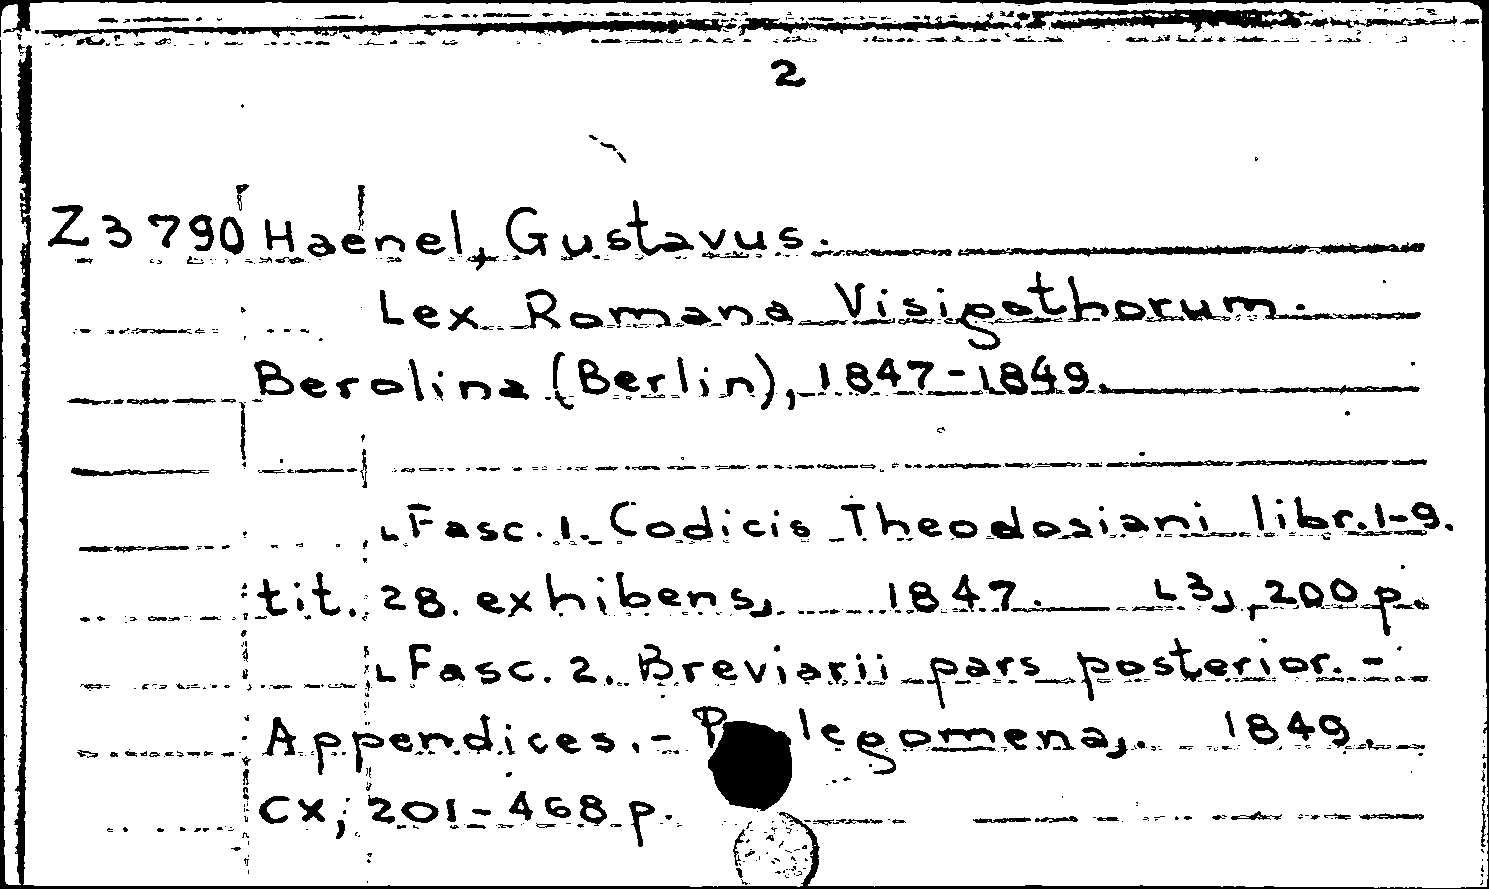 2
Z3790 Haenel, Gustavus.
Lex Romana Visigothorum.
Berolina (Berlin), 1847-1849.
[Fasc. 1. Codicis Theodosiani libr. 1-9.
tit. 28. exhibens], 1847. [3], 200 p.
[Fasc. 2. Breviarii pars posterior. -
Appendices. - Prolegomena]. 1849.
CX, 201-468 p.